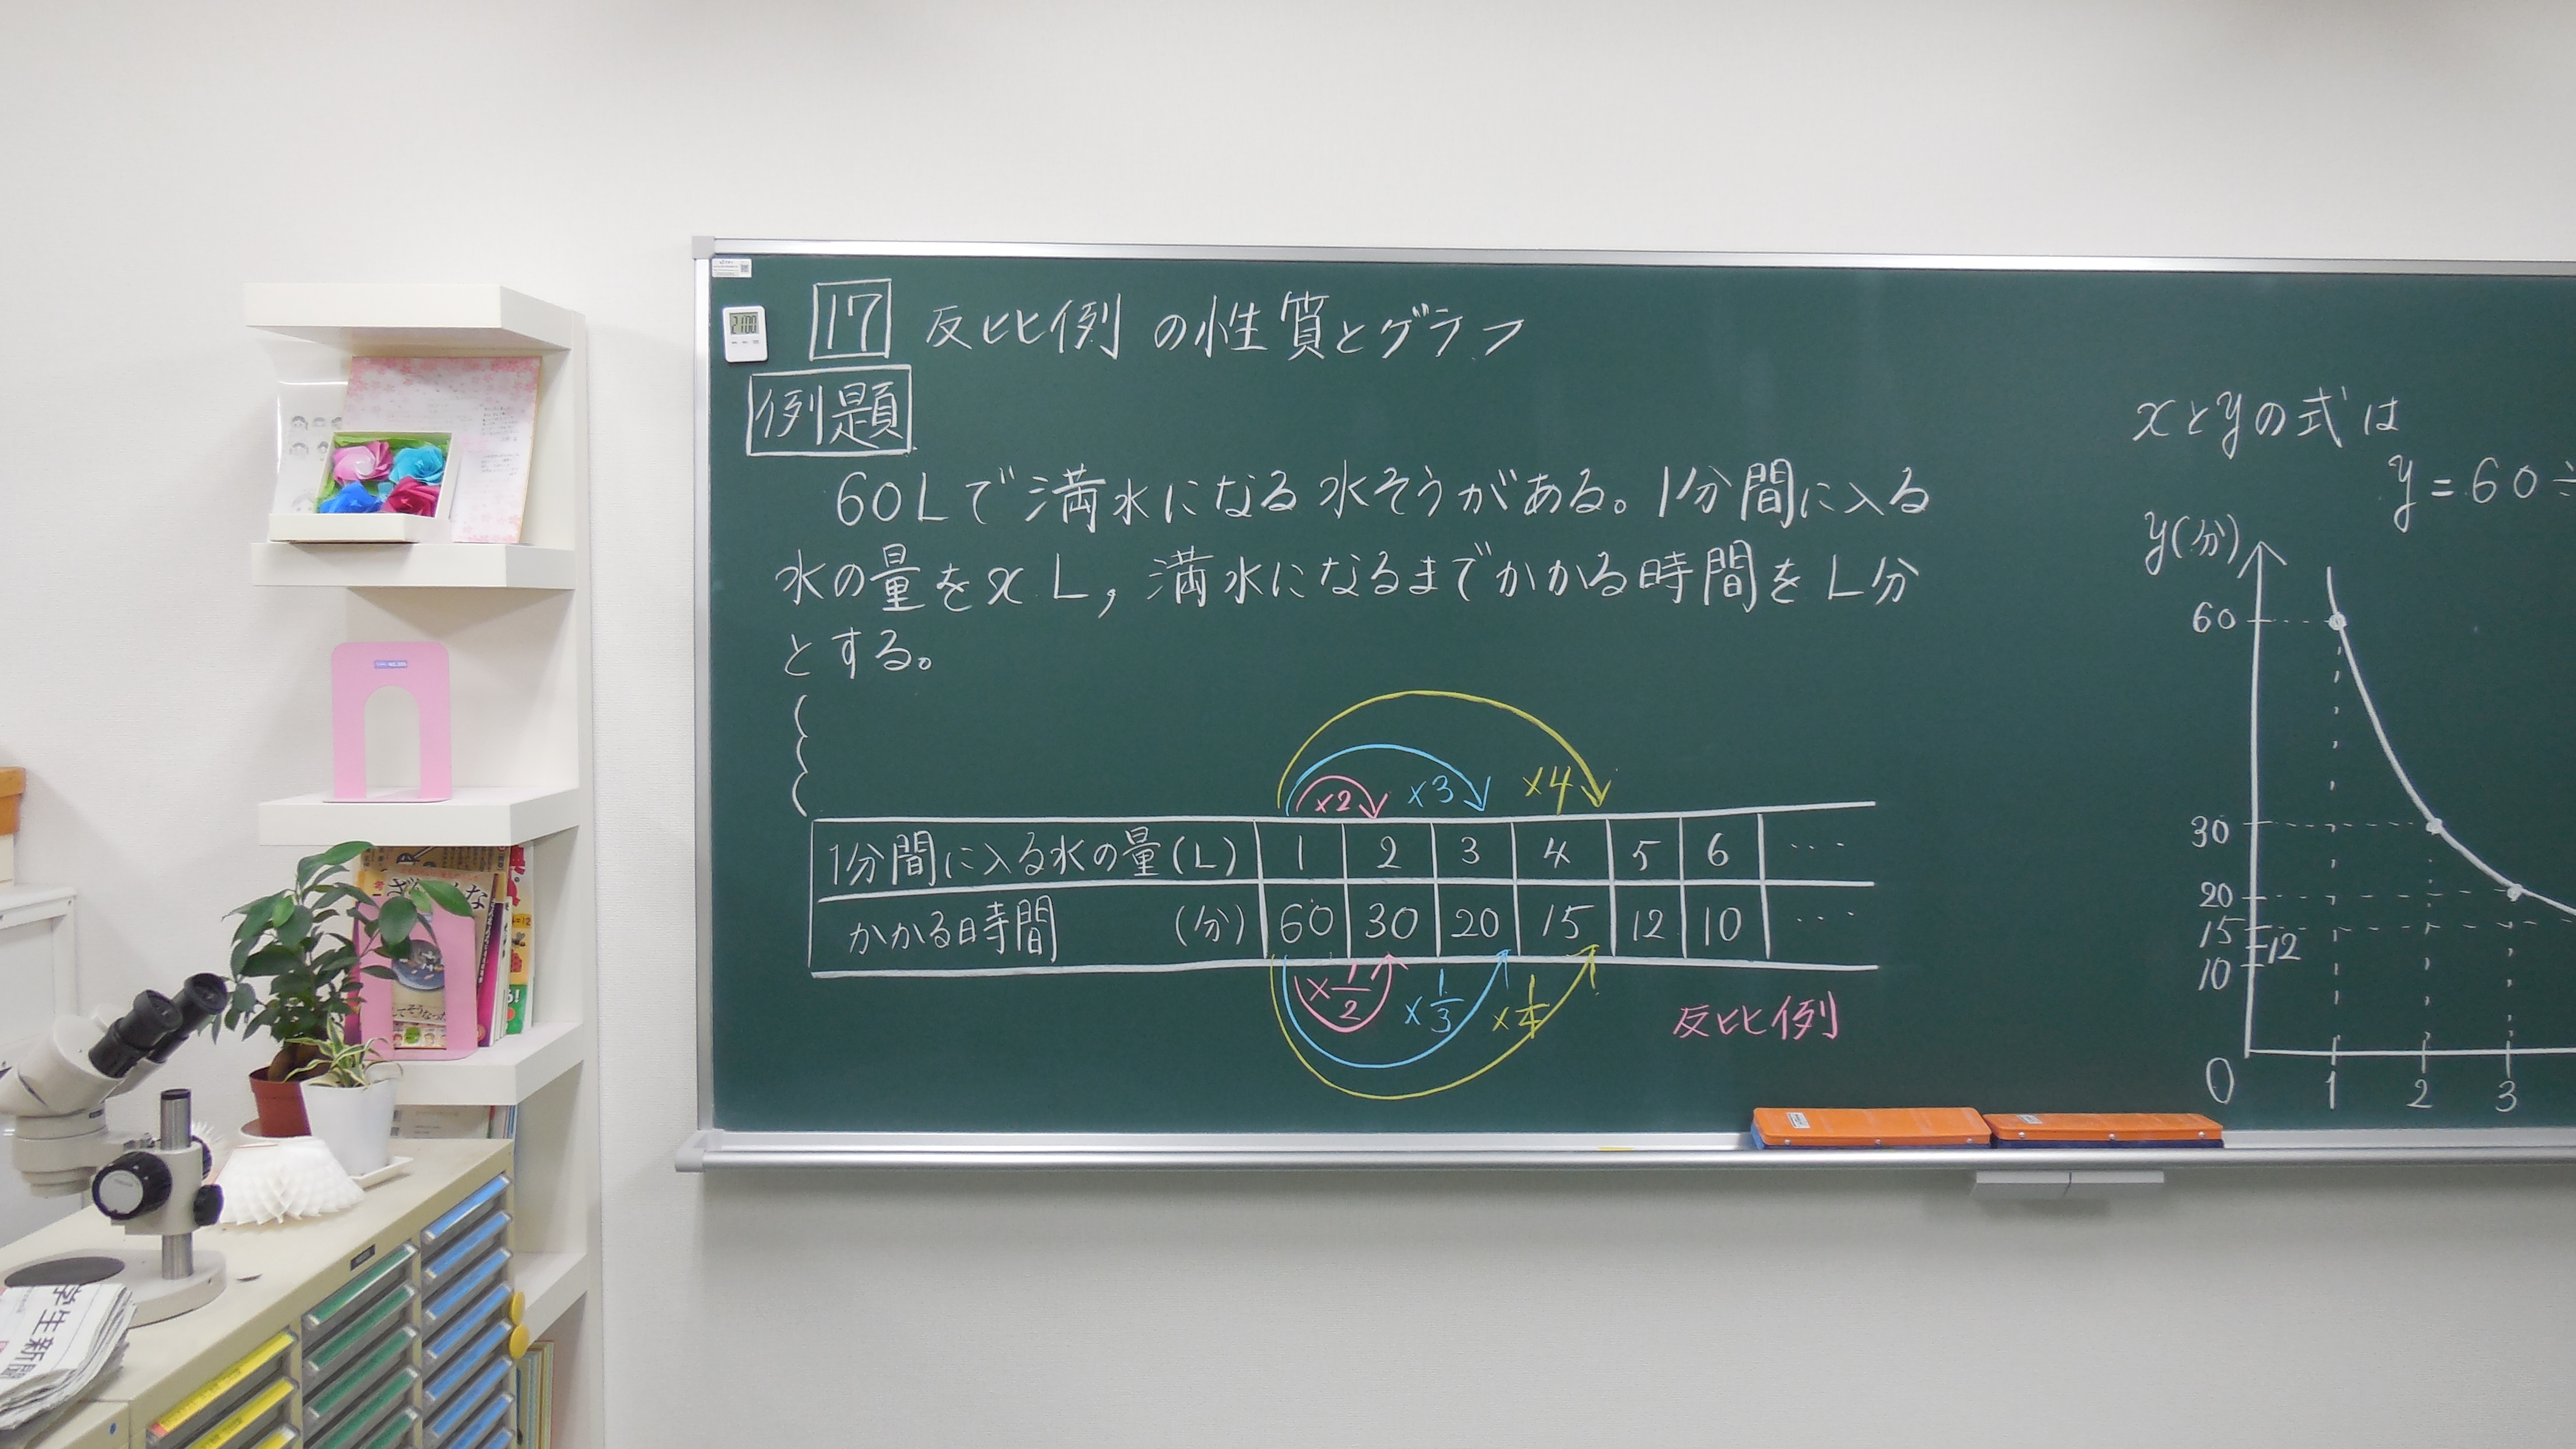 17 反比例の性質とグラフ
例題
60Lで満水になる水そうがある。1分間に入る
水の量をx L, 満水になるまでかかる時間をL分
とする。
×2 ×3 ×4
1分間に入る水の量(L) 1 2 3 4 5 6 ・・・
かかる時間 (分) 60 30 20 15 12 10 ・・・
×1/2 ×1/3 ×1/4
反比例
xとyの式は
y=60÷
y(分)
60
30
20
15
12
10
0 1 2 3
学生新聞